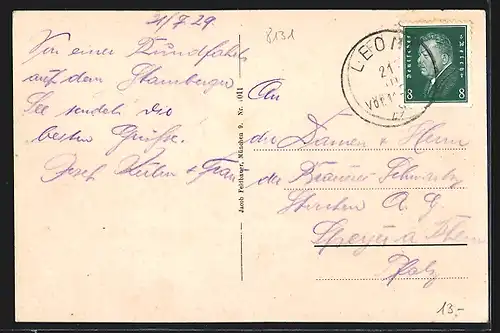 21/7.29.
8131
Von einer Rundfahrt
auf dem Starnberger
See sendet die
besten Grüße.
Josef Huber + Frau
Jacob Feldbauer, München 9. Nr. 011
LEONI
21.
Deutsches Reich
8 8
An
die Damen & Herrn
der Brauerei Schwartz
Storchen A. G.
Speyer a. Rhein
Pfalz
13.-